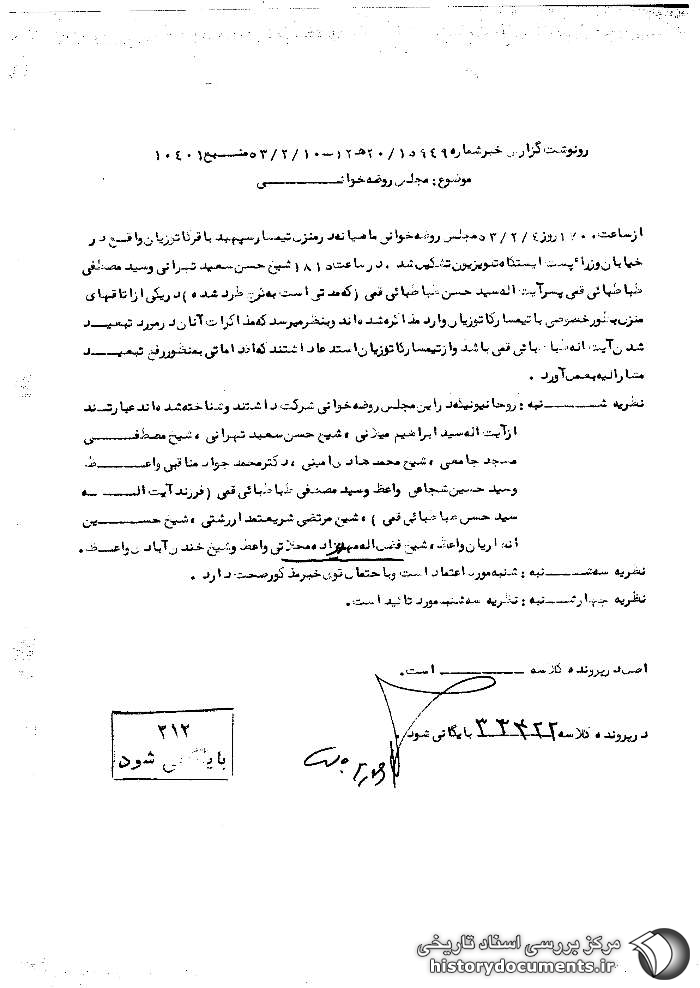 رونوشت گزارش خبر شماره ۱۵۹۴۹/۲۰ هـ ۱۲ – ۵۳/۲/۱۰ منبع ۱۰۴۰۱
موضوع : مجلس روضه خوانی
از ساعت روز ۵۳/۲/۴ مجلس روضه خوانی ماهیانه در منزل تیمسار سپهبد باقر کاتوزیان واقع در
خیابان وزراء پشت ایستگاه تلویزیون تشکیل شد . در ساعت شیخ حسن سعید تهرانی و سید مصطفی
طباطبائی قمی پسر آیت اله سید حسن طباطبائی قمی ( که مدتی است به کرج طرد شده ) در یکی از اتاقهای
منزل بطور خصوصی با تیمسار کاتوزیان وارد مذاکره شده اند و بنظر میرسد که مذاکرات آنان در مورد تبعید
شدن آیت اله طباطبائی قمی باشد و از تیمسار کاتوزیان استدعا داشتند که اقداماتی به منظور رفع تبعید
مشارالیه بعمل آورد .
نظریه شنبه : روحانیونیکه در این مجلس روضه خوانی شرکت داشتند و شناخته شده اند عبارتند
از آیت اله سید ابراهیم میلانی ، شیخ حسن سعید تهرانی ، شیخ مصطفی
مسجد جامعی ، شیخ محمد هادی امینی ، دکتر محمد جواد مناقبی واعظ
و سید حسین شجاعی واعظ و سید مصطفی طباطبائی قمی ( فرزند آیت اله
سید حسن طباطبائی قمی ) ، شیخ مرتضی شریعتمدار رشتی ، شیخ حسین
انصاریان واعظ ، شیخ فضل اله مهدیزاده محلاتی واعظ و شیخ خندق آبادی واعظ .
نظریه سه شنبه : شنبه مورد اعتماد است و با احتمال قوی خبر مذکور صحت دارد .
نظریه چهارشنبه : نظریه سه شنبه مورد تائید است .
اصل در پرونده کلاسه است .
در پرونده کلاسه ۳۳۴۲۲ بایگانی شود .
۳۱۲
بایگانی شود
مرکز بررسی اسناد تاریخی
historydocuments.ir